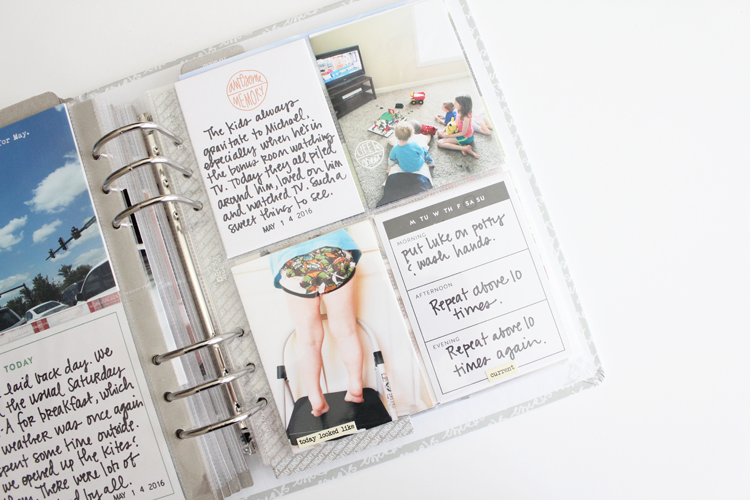 for May.
TODAY
laid back day. we
the usual Saturday
-A for breakfast, which
weather was once again
spent some time outside.
we opened up the kites?
There were lots of
by all.
MAY 14 2016
awesome
MEMORY
The kids always
gravitate to Michael,
especially when he's in
the bonus room watching
TV. Today they all piled
around him, loved on him
and watched TV. Such a
sweet thing to see.
MAY 14 2016
M TU W TH F SA SU
MORNING
put Luke on potty
& wash hands.
AFTERNOON
Repeat above 10
times.
EVENING
Repeat above 10
times again.
current
today looked like